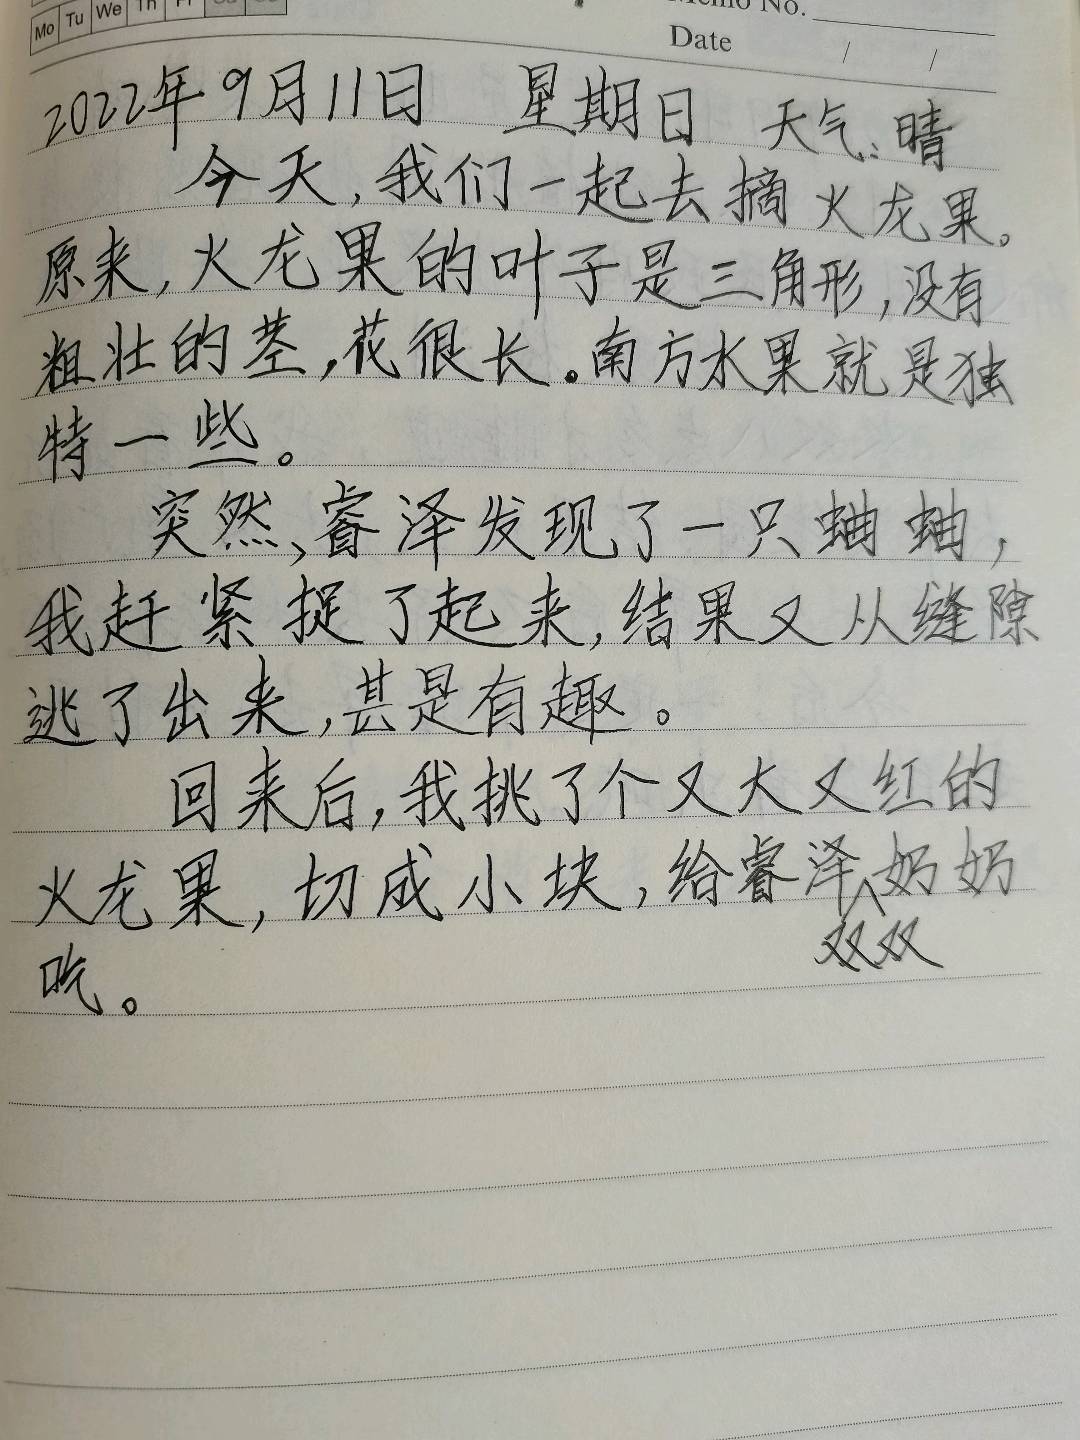 Mo Tu We Th Fr
Memo No.
Date / /
2022年9月11日 星期日 天气:晴
今天,我们一起去摘火龙果。
原来,火龙果的叶子是三角形,没有
粗壮的茎,花很长。南方水果就是独
特一些。
突然,睿泽发现了一只蛐蛐,
我赶紧捉了起来,结果又从缝隙
逃了出来,甚是有趣。
回来后,我挑了个又大又红的
火龙果,切成小块,给睿泽奶奶
双双
吃。